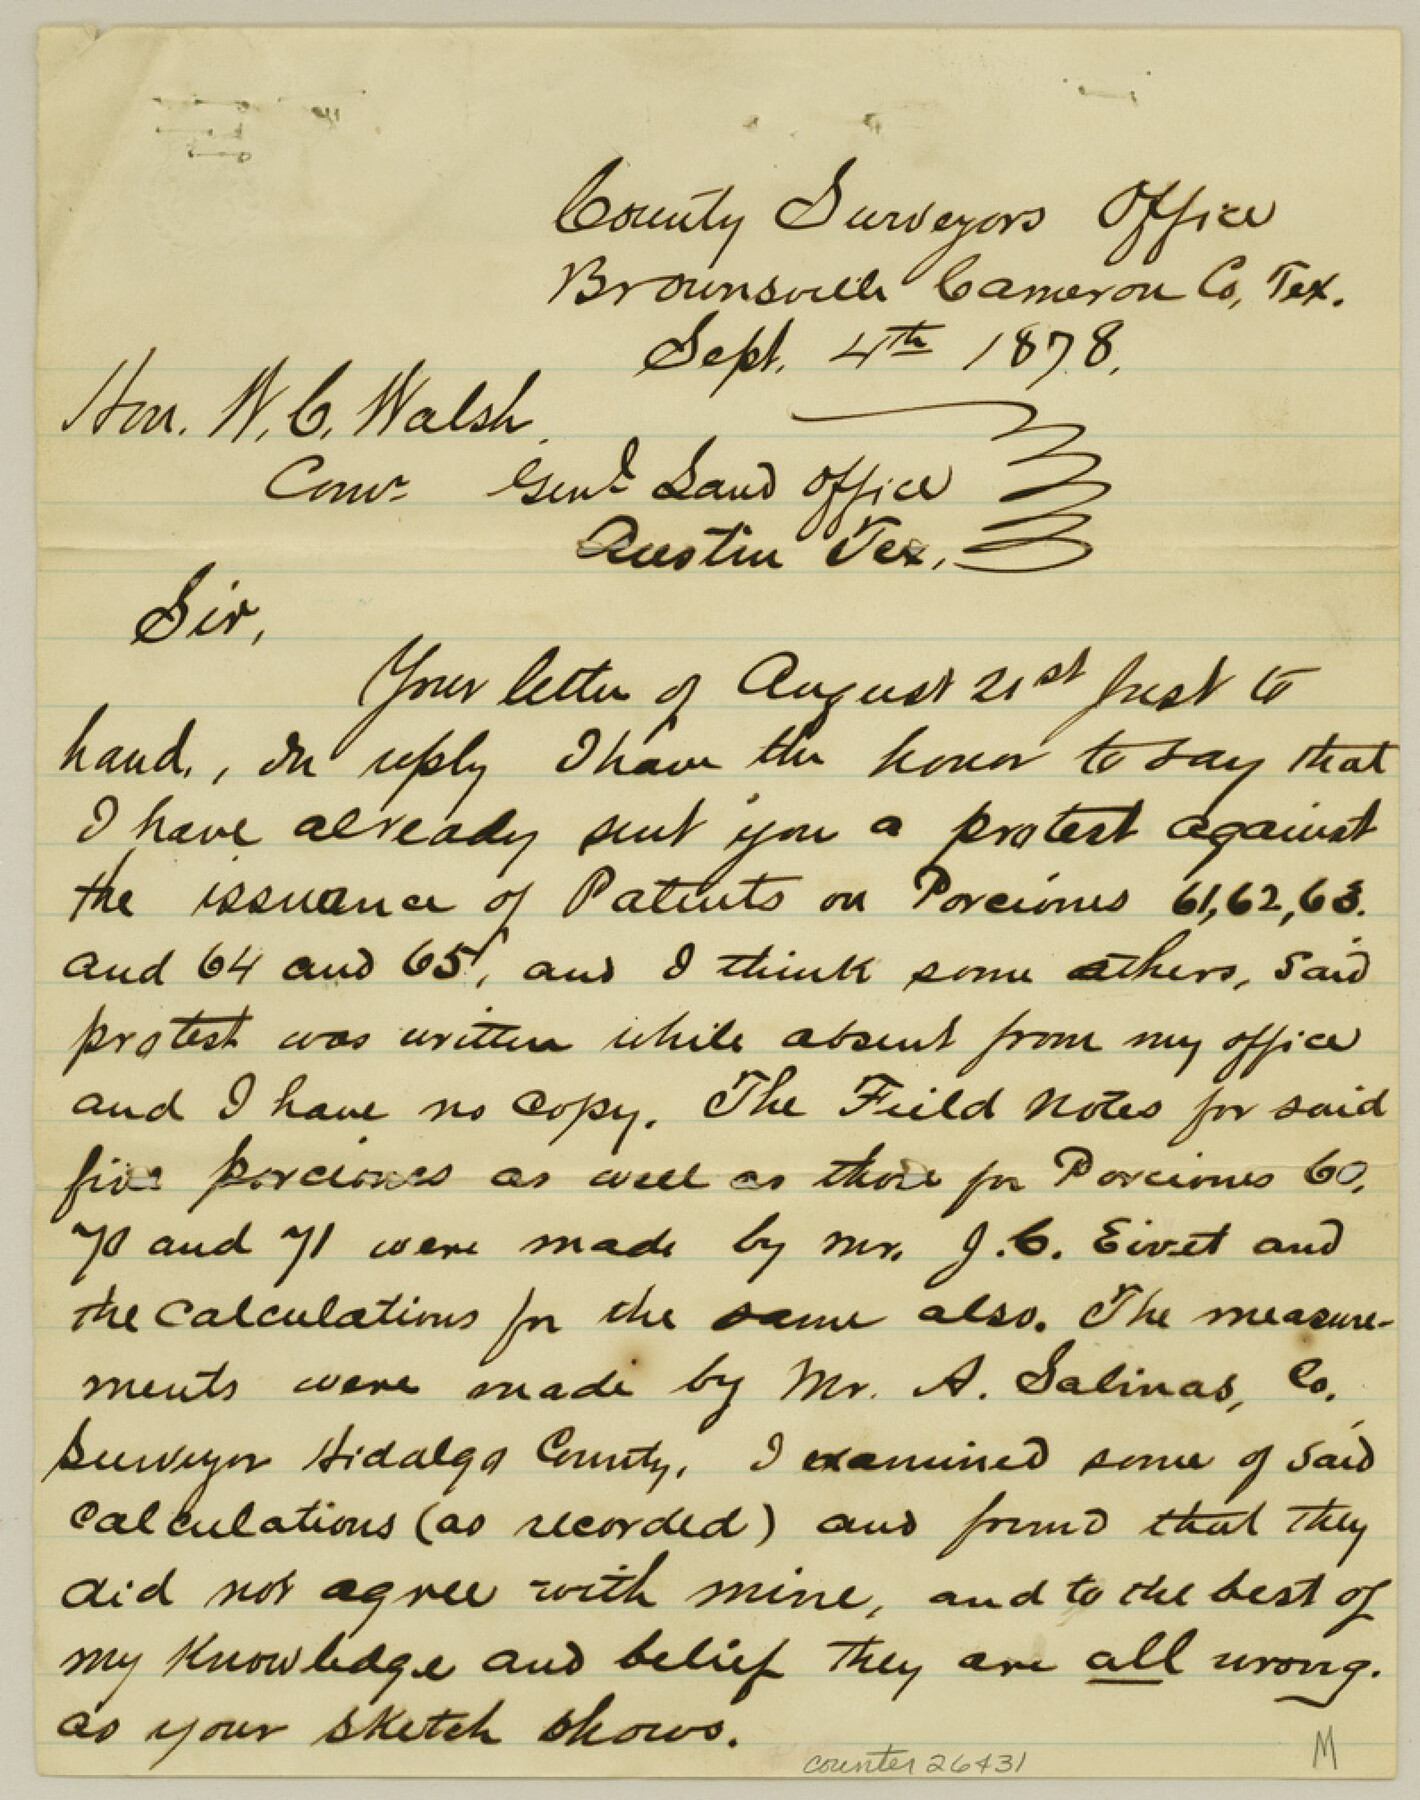 County Surveyors Office
Brownsville Cameron Co, Tex.
Sept. 4th 1878.
Hon. W. C. Walsh.
Comr Genl Land Office
Austin Tex.
Sir,
Your letter of August 21st just to
hand., In reply I have the honor to say that
I have already sent you a protest against
the issuance of Patents on Porciones 61, 62, 63.
and 64 and 65, and I think some others, Said
protest was written while absent from my office
and I have no copy. The Feild Notes for said
five porciones as well as those for Porciones 60,
70 and 71 were made by mr. J. C. Eivet and
the calculations for the same also. The measure-
ments were made by Mr. A. Salinas, Co.
Surveyor Hidalgo County. I examined some of said
calculations (as recorded) and found that they
did not agree with mine, and to the best of
my Knowledge and belief they are all wrong.
as your sketch shows.
counter 26431
M